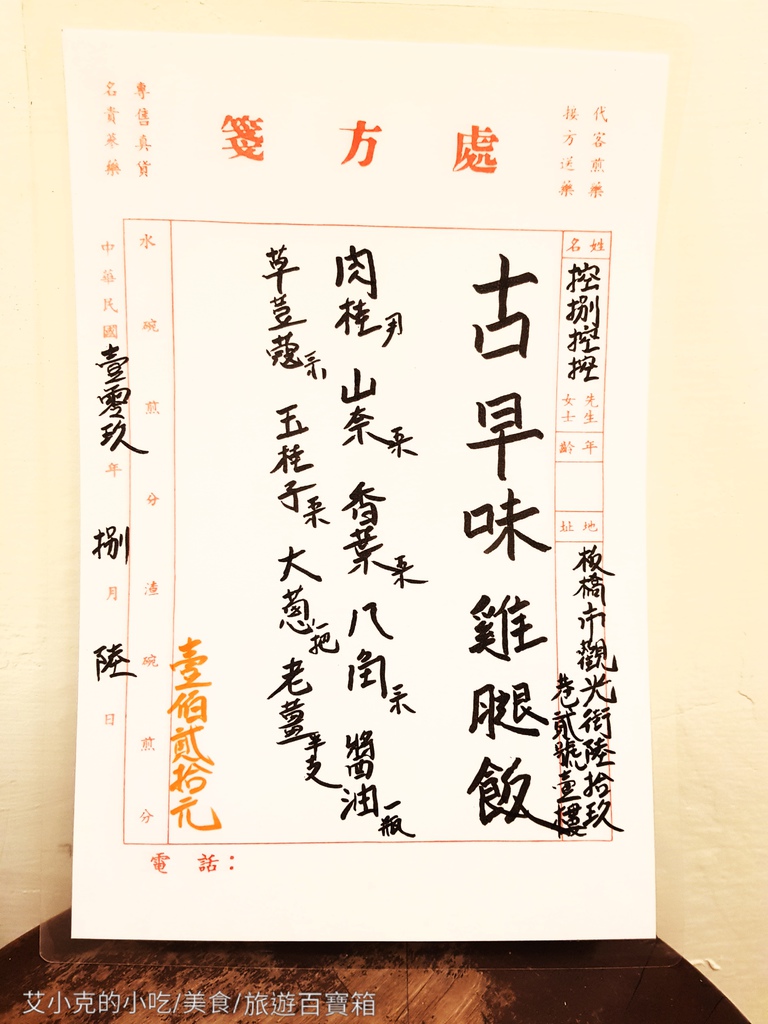 處方箋
代客煎藥
接方送藥
專售真貨
名貴藥材
姓名
控捌控控
先生
女士
年齡
地址
板橋市觀光街陸拾玖
巷貳號壹樓
古早味雞腿飯
肉桂 山奈 香葉 八角 醬油一瓶
草荳蔻 玉桂子 大蔥一把 老薑半支
壹佰貳拾元
水 碗煎 分 渣 碗煎 分
中華民國壹零玖年捌月陸日
電話：
艾小克的小吃/美食/旅遊百寶箱